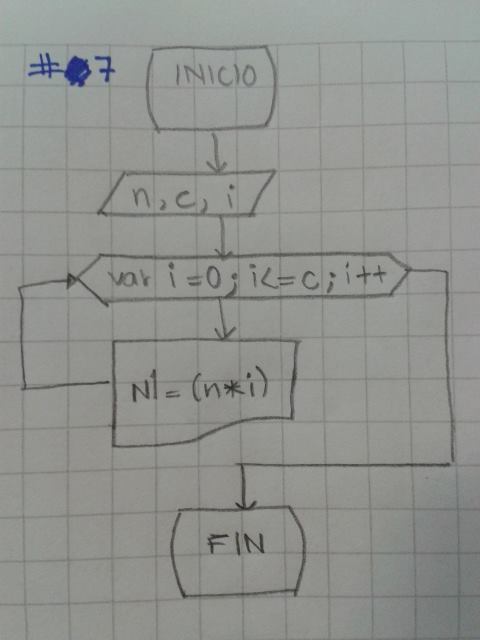 # 7
INICIO
n, c, i
var i=0; i<=c; i++
N1 = (n*i)
FIN